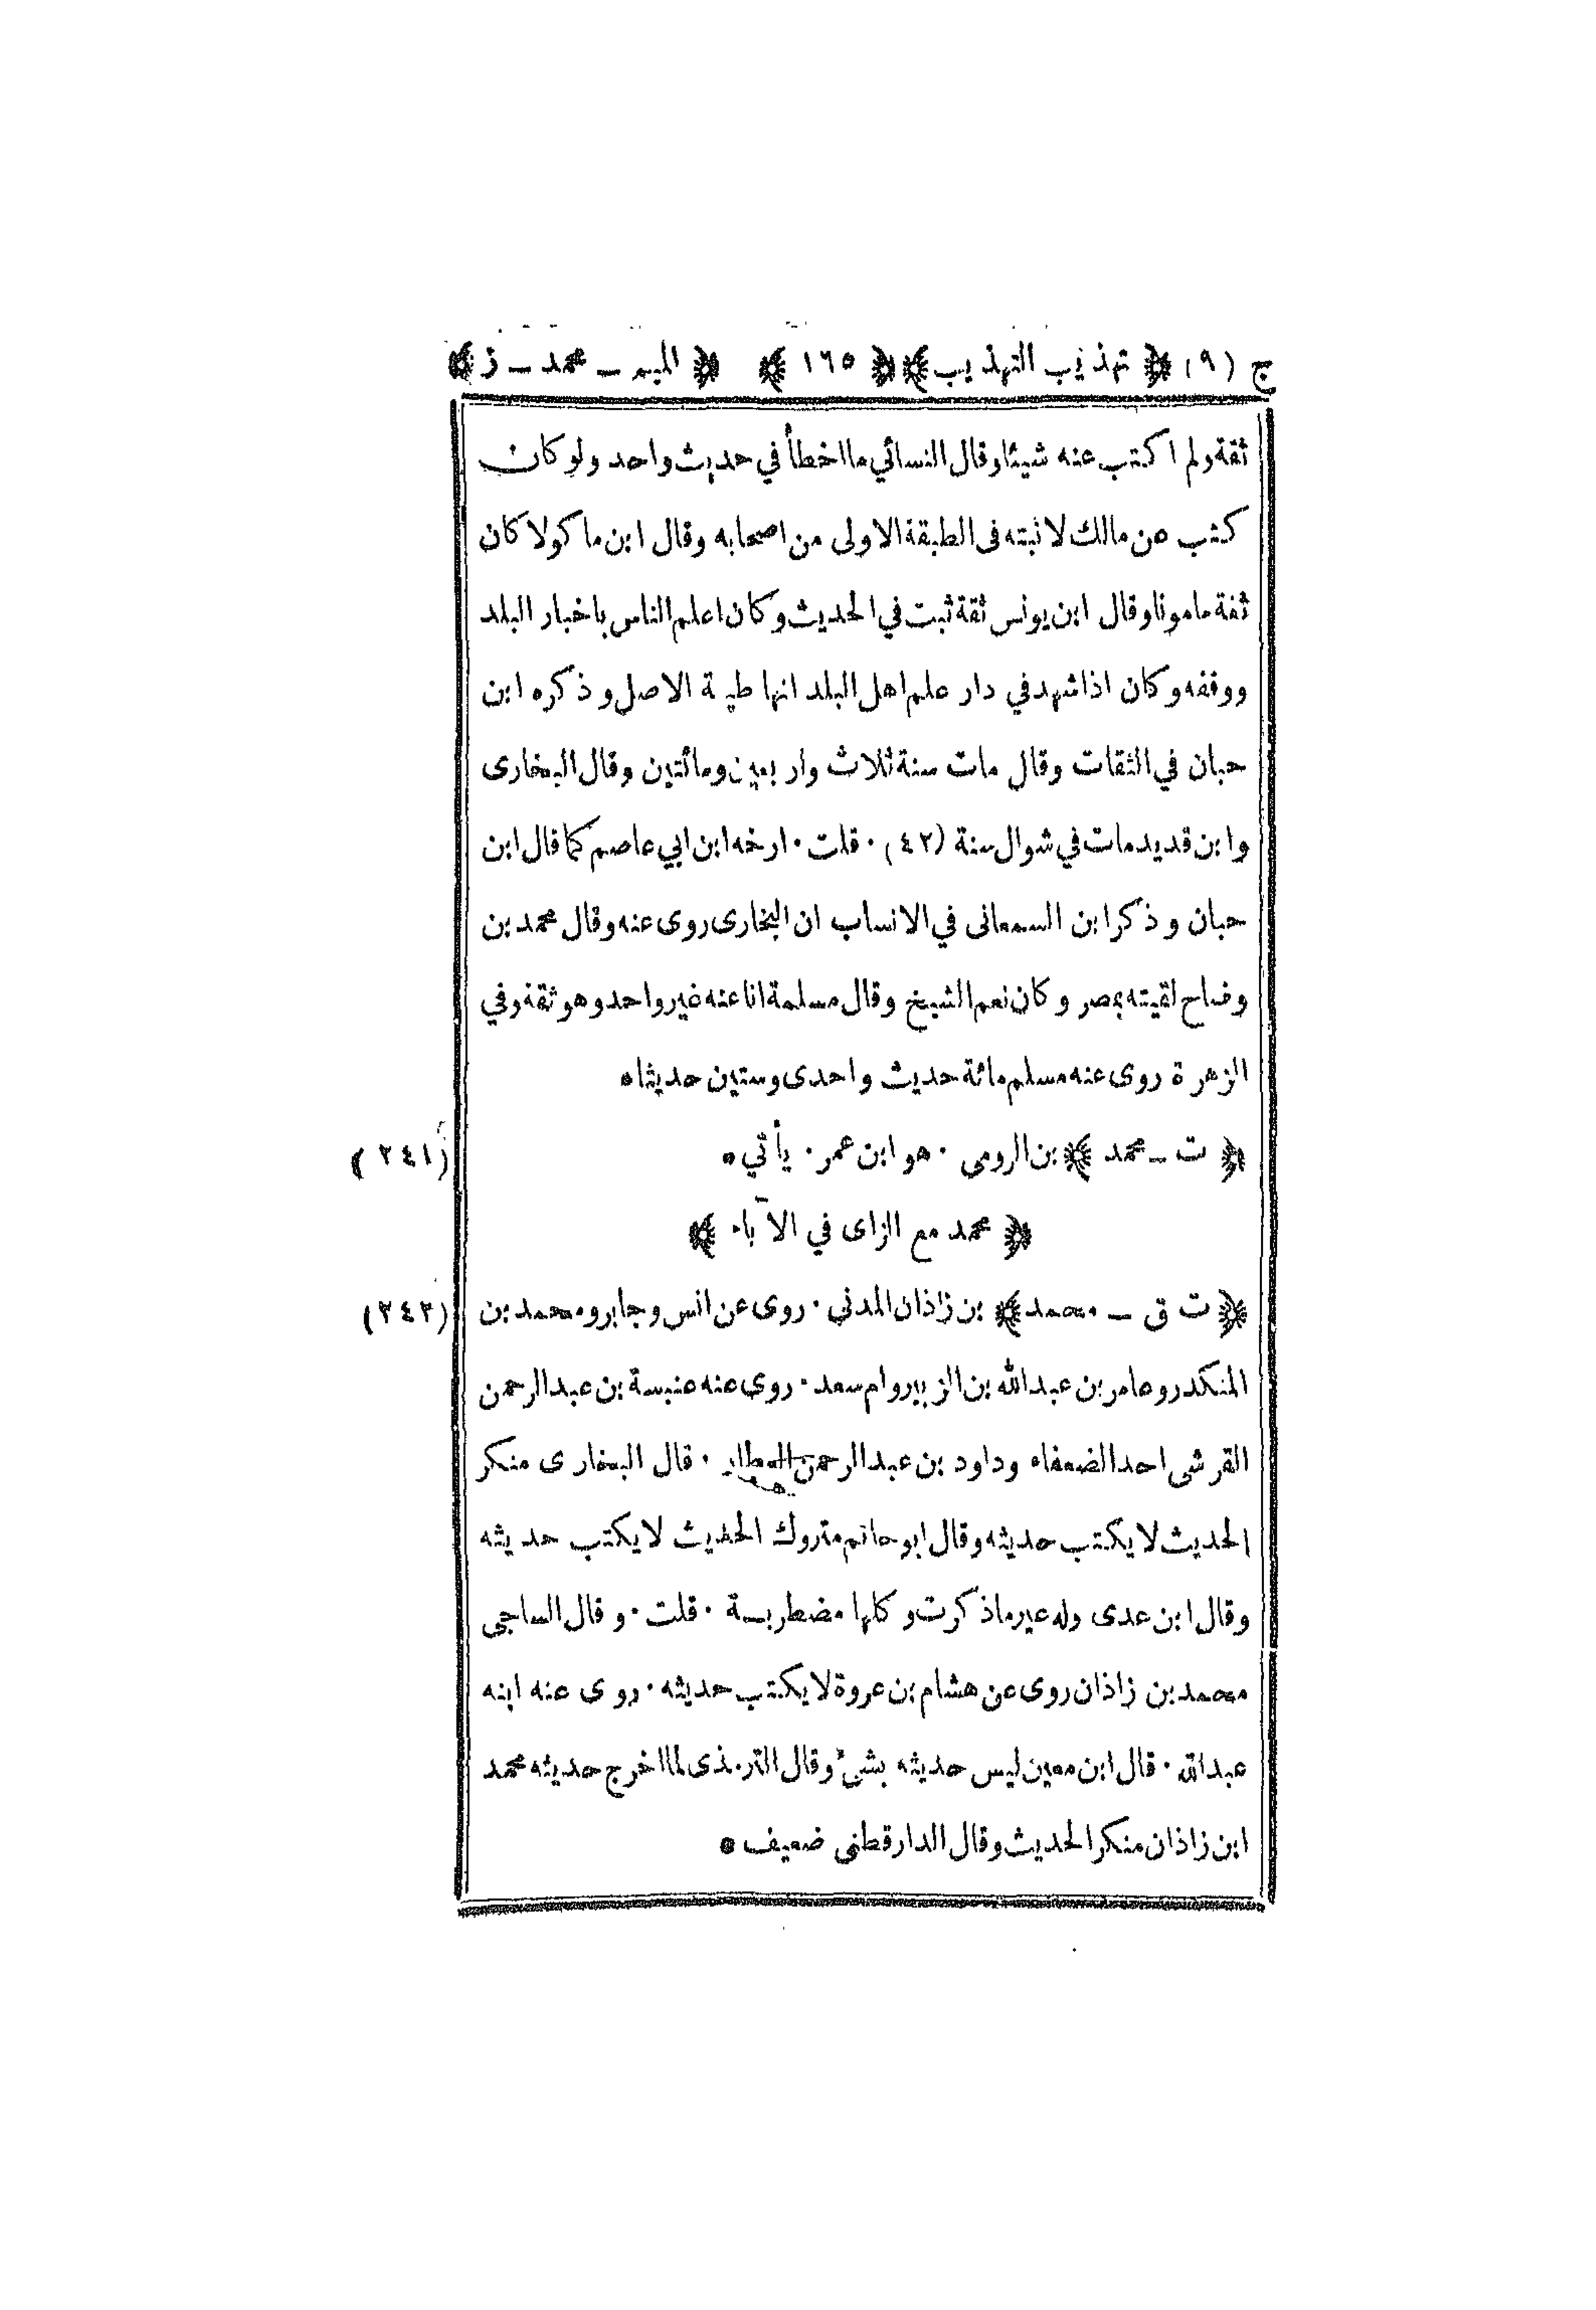 ج (٩) ﴿ تهذيب التهذيب ﴾ ﴿ ١٦٥ ﴾ ﴿ الميم ــ محمد ــ ز ﴾
ثقة ولم اكتب عنه شيئا وقال النسائي ما اخطأ في حديث واحد ولو كان
كتب عن مالك لاثبته فى الطبقة الاولى من اصحابه وقال ابن ماكولا كان
ثقة مامونا وقال ابن يونس ثقة ثبت في الحديث وكان اعلم الناس باخبار البلد
ووقفه وكان اذا شهد في دار علم اهل البلد انها طيبة الاصل وذكره ابن
حبان في الثقات وقال مات سنة ثلاث واربعين ومائتين وقال البخارى
وابن قديد مات في شوال سنة (٤٢) · قلت · ارخه ابن ابي عاصم كما قال ابن
حبان وذكر ابن السمعانى في الانساب ان البخارى روى عنه وقال محمد بن
وضاح لقيته بمصر وكان نعم الشيخ وقال مسلمة انا عنه غير واحد وهو ثقة وفي
الزهرة روى عنه مسلم مائة حديث واحدى وستين حديثا ٭
﴿ ت ــ محمد ﴾ بن الرومى · هو ابن عمر · يأتي ٭ (٢٤١)
﴿ محمد مع الزاى في الآباء ﴾
﴿ ت ق ــ محمد ﴾ بن زاذان المدني · روى عن انس وجابر ومحمد بن (٢٤٢)
المنكدر وعامر بن عبدالله بن الزبير وام سعد · روى عنه عنبسة بن عبدالرحمن
القرشى احد الضعفاء وداود بن عبدالرحمن العطار · قال البخارى منكر
الحديث لا يكتب حديثه وقال ابو حاتم متروك الحديث لا يكتب حديثه
وقال ابن عدى وله غير ماذكرت وكلها مضطربة · قلت · وقال الساجى
محمد بن زاذان روى عن هشام بن عروة لا يكتب حديثه · روى عنه ابنه
عبدالله · قال ابن معين ليس حديثه بشئ وقال الترمذى لما اخرج حديثه محمد
ابن زاذان منكر الحديث وقال الدارقطنى ضعيف ٭